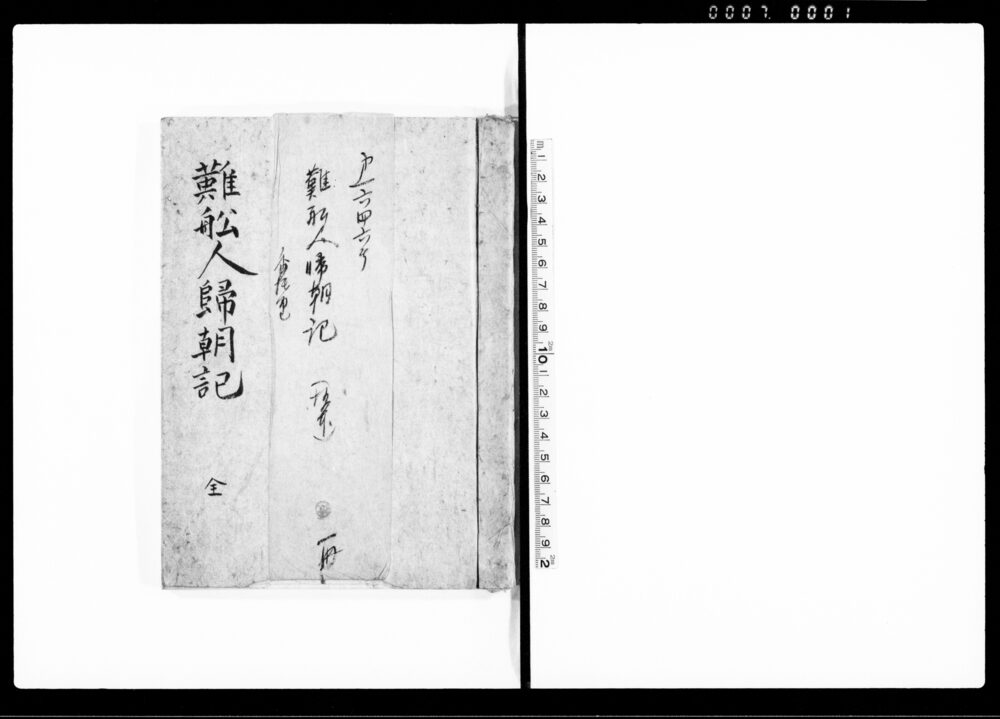 0007.0001
六四六号
難舩人帰朝記
一冊
難舩人歸朝記
全
m 1 2 3 4 5 6 7 8 9 10 1 2 3 4 5 6 7 8 9 2